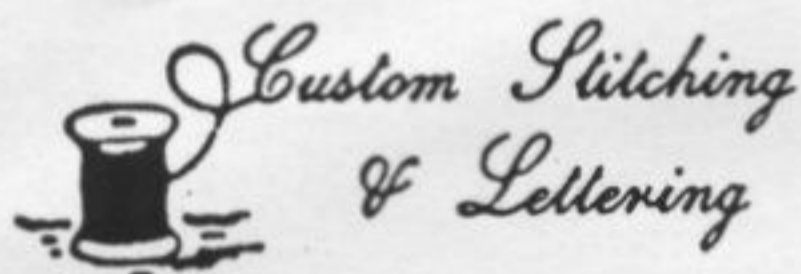 Custom Stitching
& Lettering